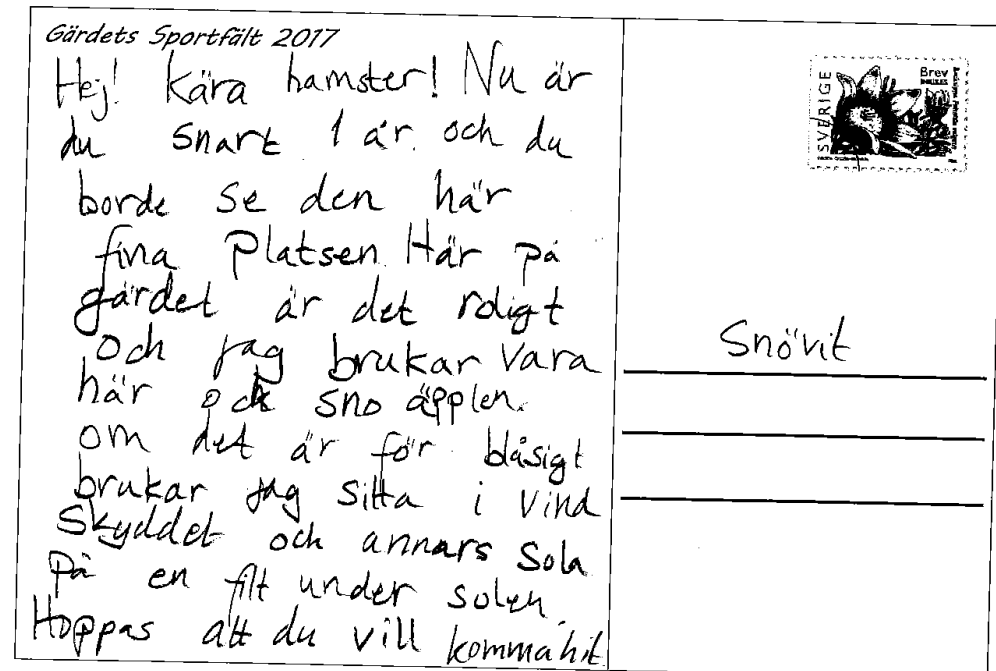 Gärdets Sportfält 2017
Hej! Kära hamster! Nu är
du snart 1 år. och du
borde se den här
fina platsen Här på
gärdet är det roligt
och jag brukar vara
här och sno äpplen.
om det är för blåsigt
brukar jag sitta i vind
skyddet och annars sola
på en filt under solen.
Hoppas att du vill komma hit
SVERIGE
Brev
INRIKES
Snövit